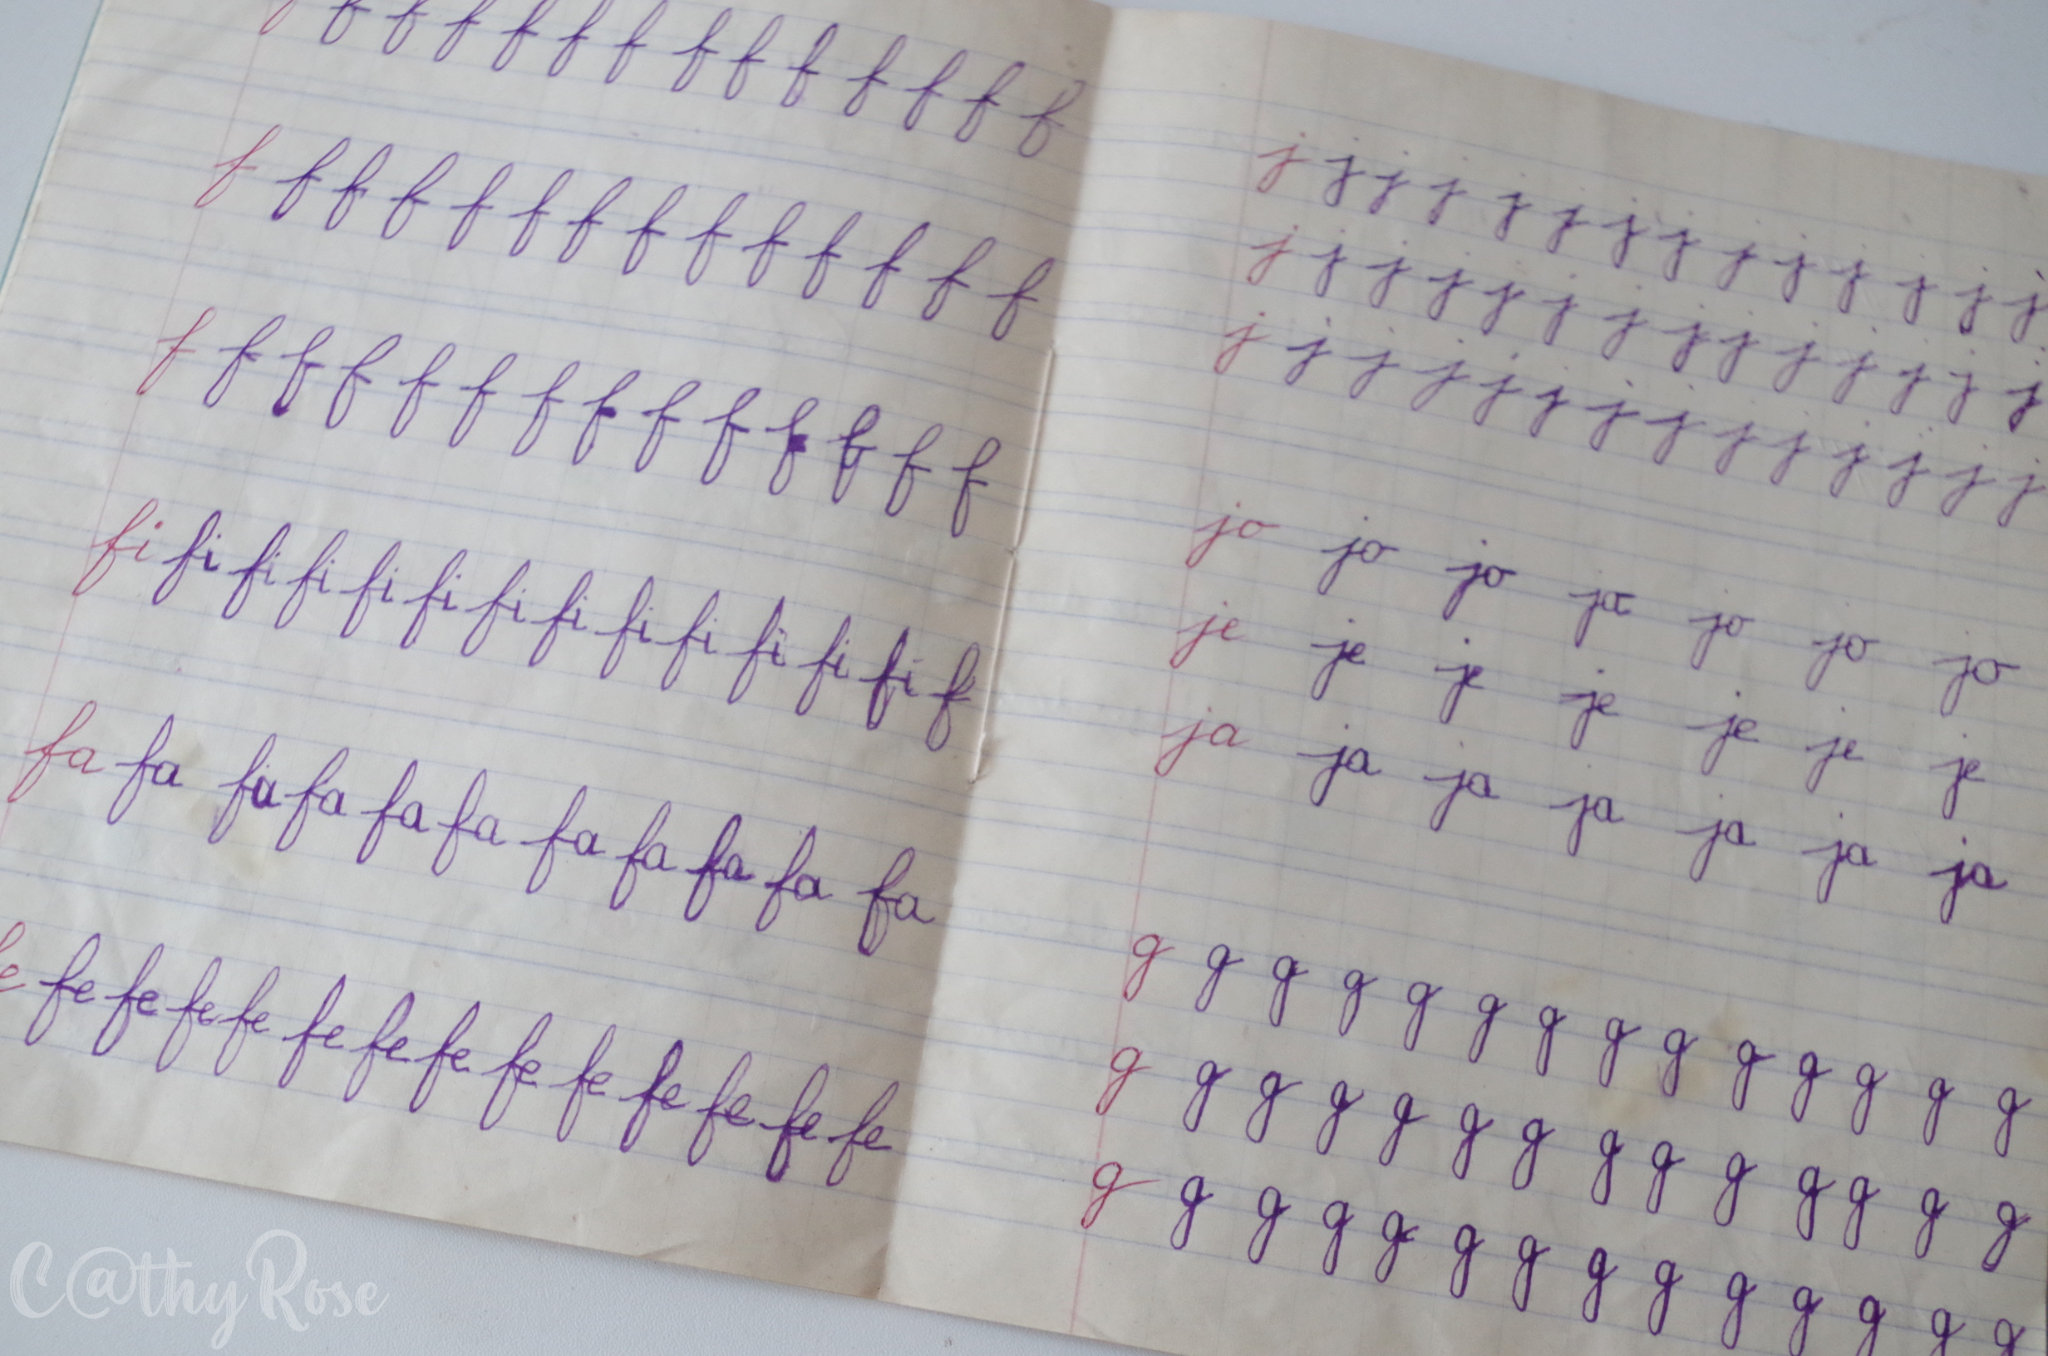 f f f f f f f f f f f f f f
f f f f f f f f f f f f f f
f f f f f f f f f f f f f f
fi fi fi fi fi fi fi fi fi fi fi fi fi f
fa fa fa fa fa fa fa fa fa fa fa
fe fe fe fe fe fe fe fe fe fe fe fe fe fe
j j j j j j j j j j j j j j
j j j j j j j j j j j j j j
j j j j j j j j j j j j j j
jo jo jo ja jo jo jo
je je je je je je je
ja ja ja ja ja ja ja
g g g g g g g g g g g g g g
g g g g g g g g g g g g g g
g g g g g g g g g g g g g g
C@thyRose